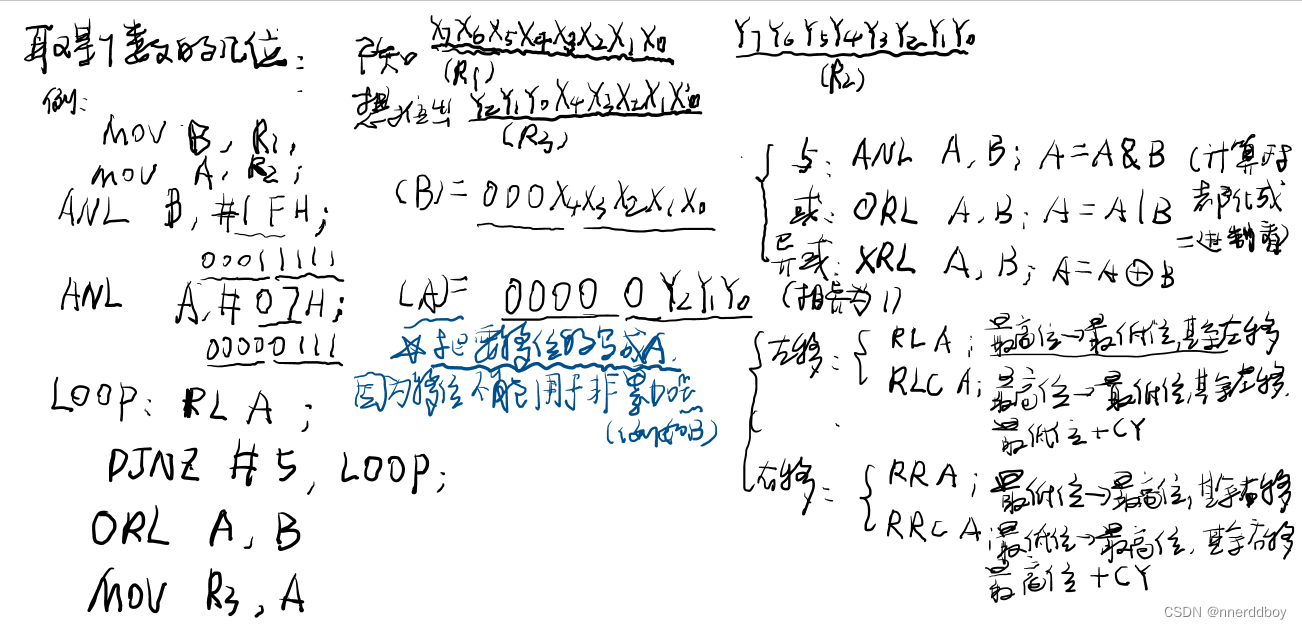 取某个数的几位:
例:
MOV B, R1,
MOV A, R2;
ANL B, #1FH;
00011111
ANL A, #07H;
00000111
LOOP: RL A ;
DJNZ #5, LOOP;
ORL A, B
MOV R3, A
已知 X7X6X5X4X3X2X1X0
(R1)
Y7Y6Y5Y4Y3Y2Y1Y0
(R2)
想输出 Y2Y1Y0X4X3X2X1X0
(R3)
(B)= 000X4X3X2X1X0
(A)= 00000Y2Y1Y0
☆把要移位的写成A.
因为移位不能用于非累加器
(例如B)
与: ANL A, B; A=A&B (计算时
或: ORL A, B; A=A|B 都化成
异或: XRL A, B; A=A⊕B 二进制看)
(相异为1)
左移= RL A ; 最高位→最低位,其余左移
RLC A; 最高位→最低位,其余左移.
最低位+CY
右移= RR A ; 最低位→最高位,其余右移
RRC A;最低位→最高位,其余右移
最高位+CY
CSDN @nnerddboy